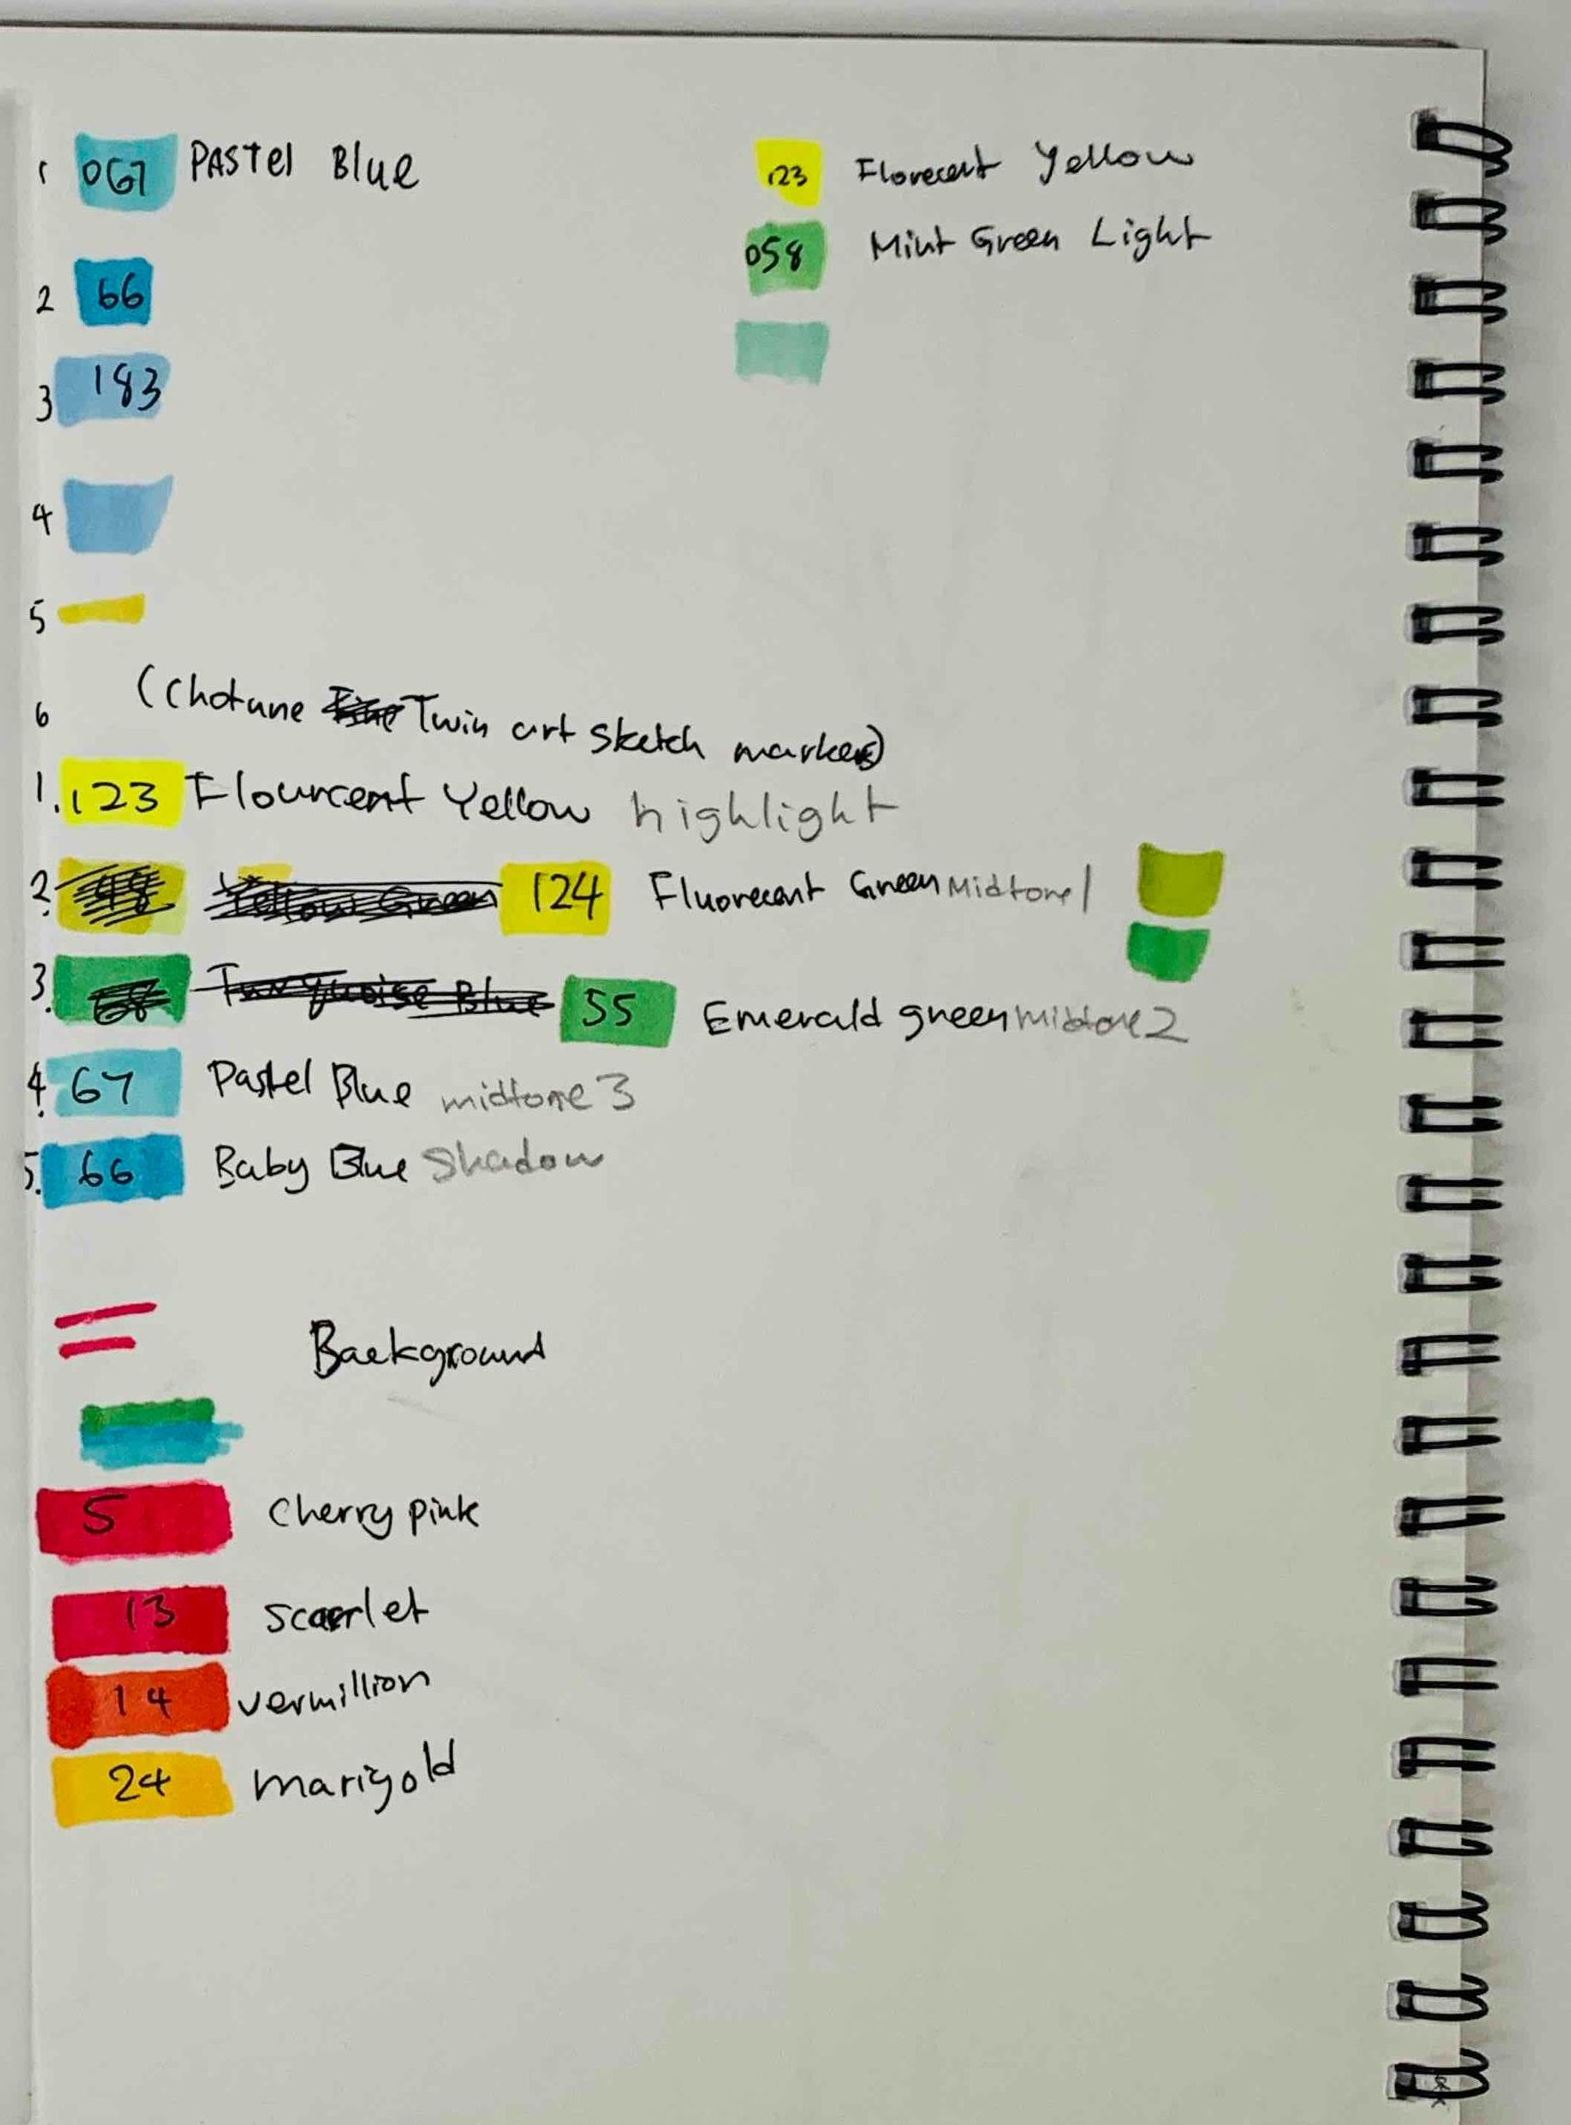 1 067 PAStel Blue
123 Florecent Yellow
058 Mint Green Light
2 66
3 183
4
5
6 (Chotune Twin art sketch markers)
1. 123 Flourcent Yellow highlight
2. 48 Yellow Green 124 Fluorecent Green Midtone 1
3. 68 Turquoise Blue 55 Emerald green midtone 2
4. 67 Pastel Blue midtone 3
5. 66 Baby Blue Shadow
Background
5 Cherry pink
13 scarrlet
14 vermillion
24 marigold